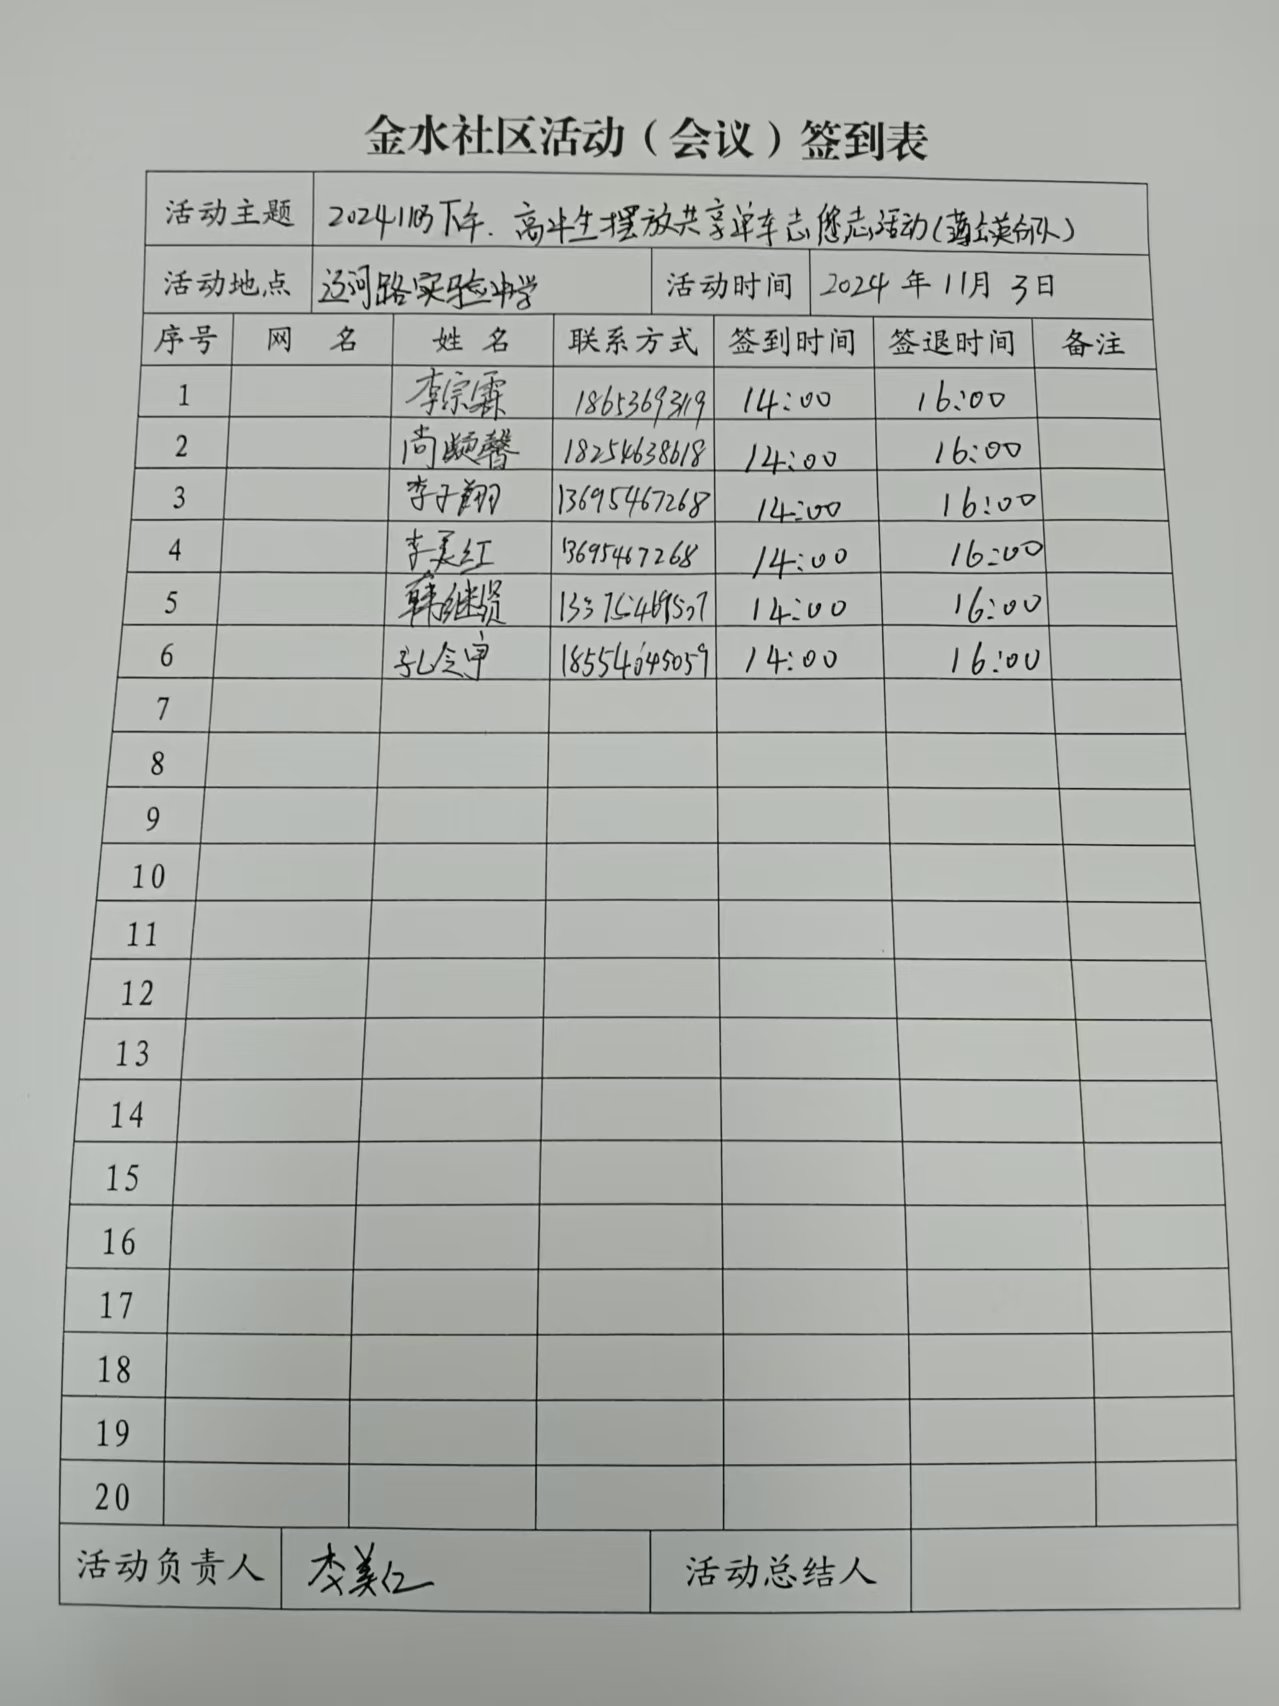 金水社区活动（会议）签到表
活动主题 20241103下午. 高中生摆放共享单车志愿活动
活动地点 运河路实验中学 活动时间 2024 年 11月 3日
序号 网 名 姓 名 联系方式 签到时间 签退时间 备注
1 李宗霖 14:00 16:00
2 尚颐馨 18254638618 14:00 16:00
3 李子翔 13695467268 14:00 16:00
4 李美红 13695467268 14:00 16:00
5 韩继贤 14:00 16:00
6 孔令审 14:00 16:00
7
8
9
10
11
12
13
14
15
16
17
18
19
20
活动负责人 李美红 活动总结人